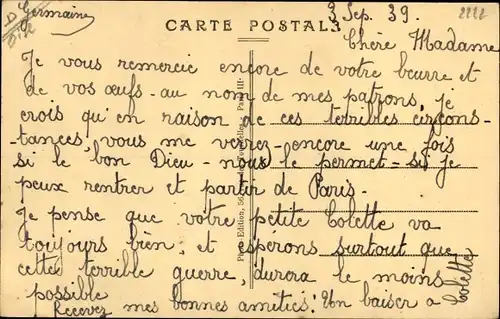 Germaine
CARTE POSTALE
3 Sep. 39.
Chère Madame
Je vous remercie encore de votre beurre et
de vos œufs - au nom de mes patrons, je
crois qu'en raison de ces terribles circons-
-tances, vous me verrez encore une fois
si le bon Dieu - nous le permet - si je
peux rentrer et partir de Paris -
Je pense que votre petite Colette va
toujours bien, et espérons surtout que
cette terrible guerre, durera le moins
possible
Recevez mes bonnes amitiés! Un baiser a Colette